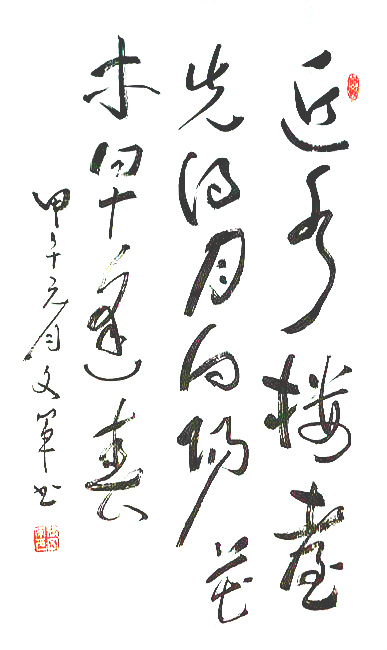 近水楼臺
先得月向陽花
木早逢春
甲午元月文軍书